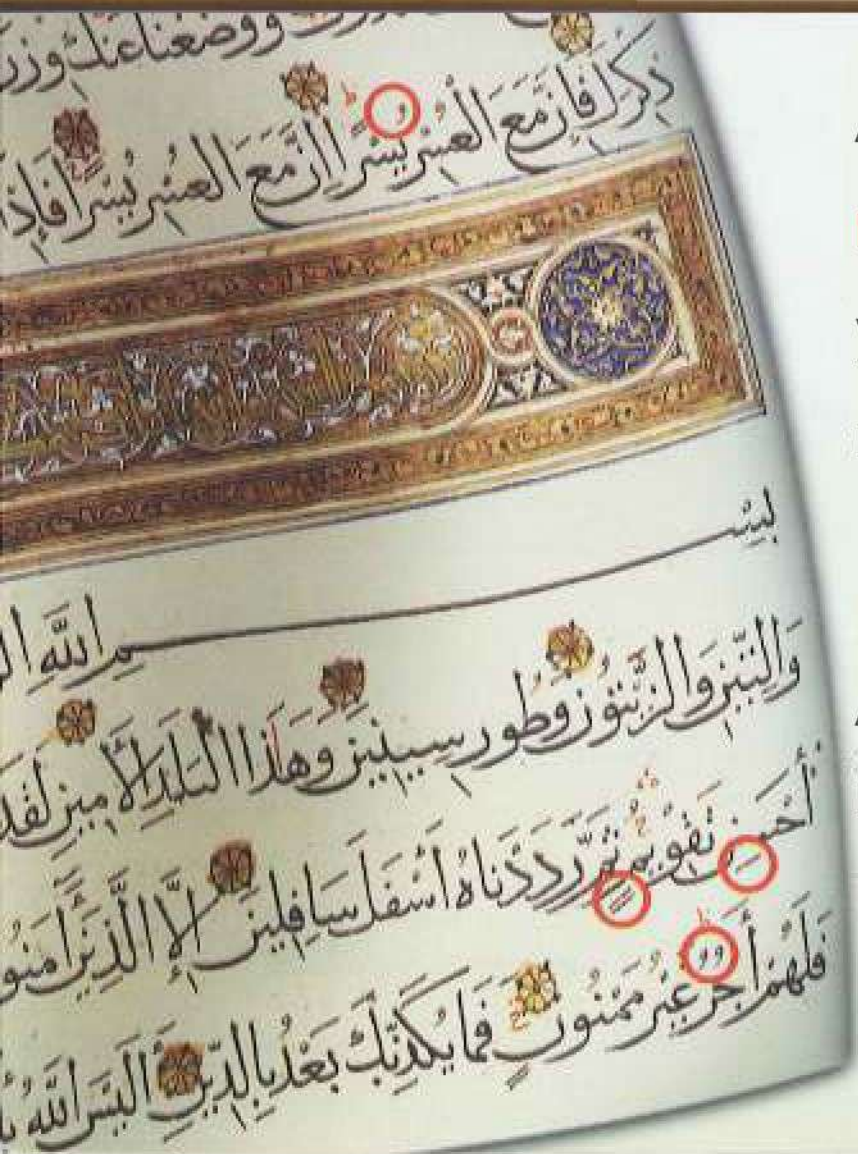 ووضعنا عنك وزر
ذِكْرَكَ فَإِنَّ مَعَ الْعُسْرِ يُسْرًا إِنَّ مَعَ الْعُسْرِ يُسْرًا فَإِذَا
بِسْمِ اللَّهِ
وَالتِّينِ وَالزَّيْتُونِ وَطُورِ سِينِينَ وَهَذَا الْبَلَدِ الْأَمِينِ لَقَدْ
أَحْسَنِ تَقْوِيمٍ ثُمَّ رَدَدْنَاهُ أَسْفَلَ سَافِلِينَ إِلَّا الَّذِينَ آمَنُوا
فَلَهُمْ أَجْرٌ غَيْرُ مَمْنُونٍ فَمَا يُكَذِّبُكَ بَعْدُ بِالدِّينِ أَلَيْسَ اللَّهُ